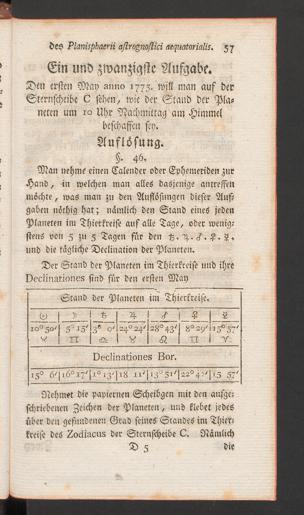 des Planisphaerii astrognostici aequatorialis. 57
Ein und zwanzigste Aufgabe.
Den ersten May anno 1775. will man auf der
Sternscheibe C sehen, wie der Stand der Pla-
neten um 10 Uhr Nachmittag am Himmel
beschaffen sey.
Auflösung.
§. 46.
Man nehme einen Calender oder Ephemeriden zur
Hand, in welchen man alles dasjenige antreffen
möchte, was man zu den Auflösungen dieser Auf-
gaben nöthig hat; nämlich den Stand eines jeden
Planeten im Thierkreise auf alle Tage, oder wenig-
stens von 5 zu 5 Tagen für den ♄. ♃. ♂. ♀. ☿.
und die tägliche Declination der Planeten.
Der Stand der Planeten im Thierkreise und ihre
Declinationes sind für den ersten May
Stand der Planeten im Thierkreise.
☉ ☽ ♄ ♃ ♂ ♀ ☿
10° 50′ 5° 15′ 3° 0′ 24° 24′ 28° 43′ 8° 29′ 15° 57′
♉ ♊ ♎ ♉ ♌ ♊ ♉
Declinationes Bor.
15° 6′ 16° 17′ 1° 13′ 18 11′ 13° 51′ 22° 4′ 15 57′
Nehmet die papiernen Scheibgen mit den aufge-
schriebenen Zeichen der Planeten, und klebet jedes
über den gefundenen Grad seines Standes im Thier-
kreise des Zodiacus der Sternscheibe C. Nämlich
D 5 die